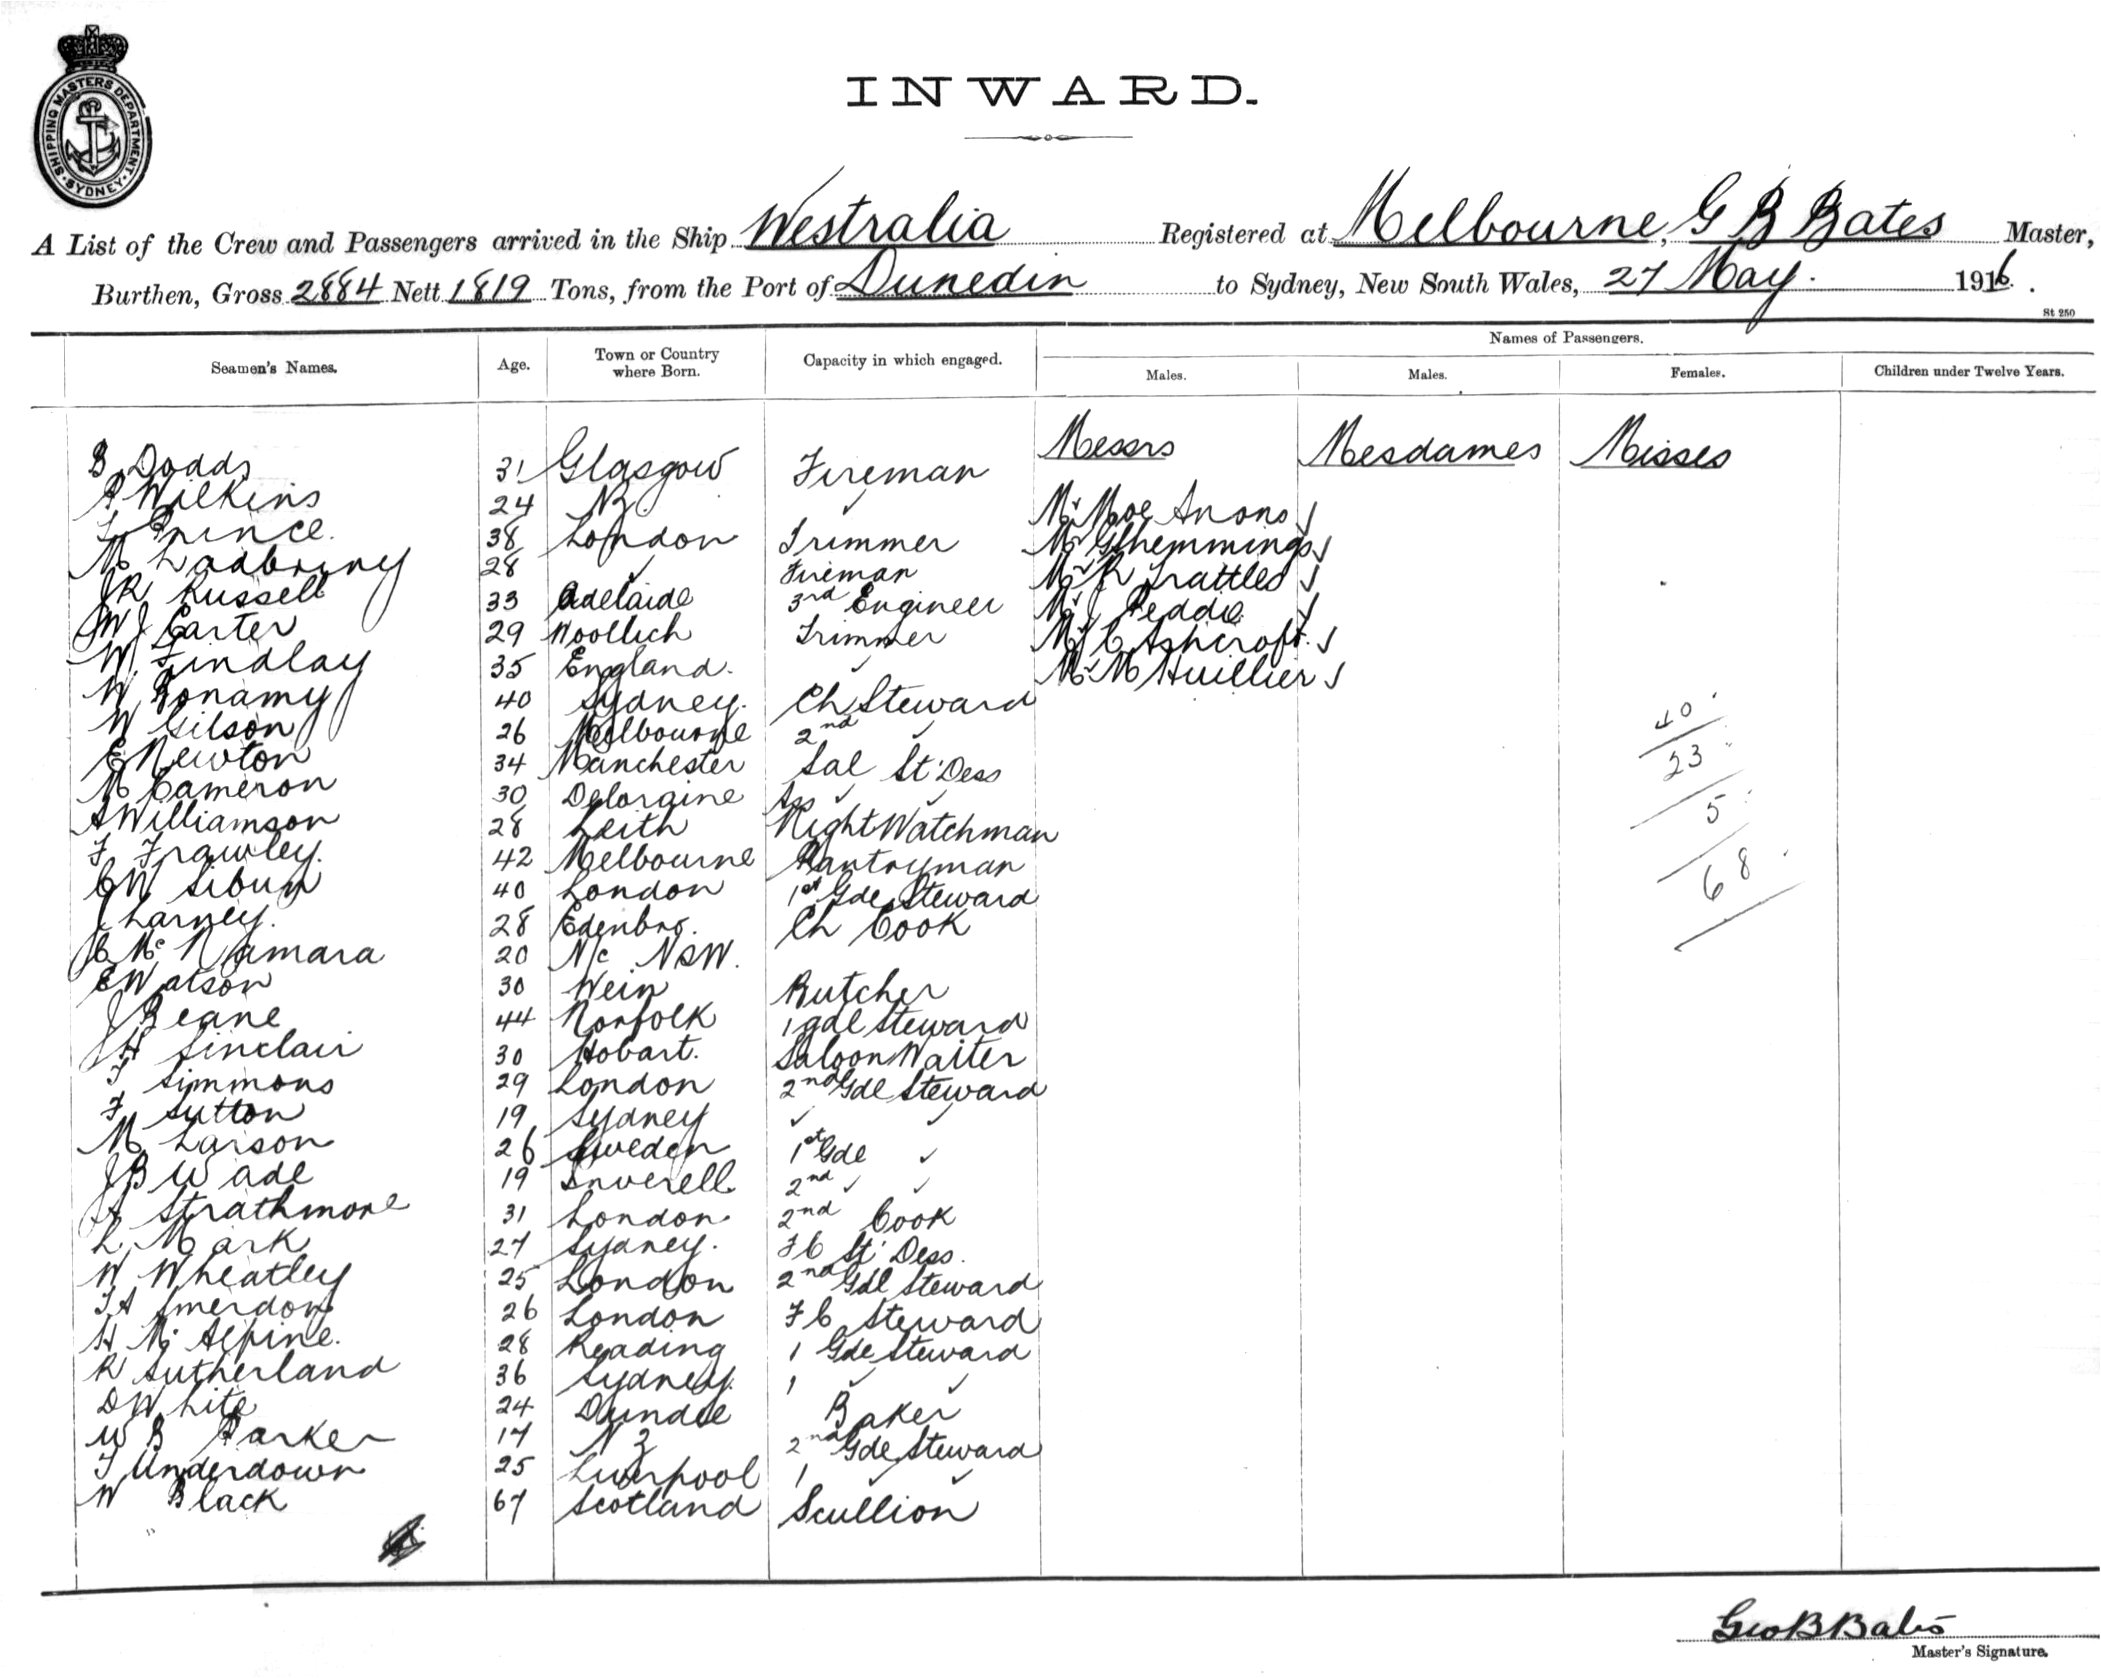 SHIPPING MASTERS DEPARTMENT. SYDNEY
INWARD.
A List of the Crew and Passengers arrived in the Ship Westralia Registered at Melbourne, G B Bates Master,
Burthen, Gross 2884 Nett 1819 Tons, from the Port of Dunedin to Sydney, New South Wales, 27 May. 1916.
St 250
Names of Passengers.
Seamen's Names. Age. Town or Country where Born. Capacity in which engaged. Males. Males. Females. Children under Twelve Years.
Messrs Mesdames Misses
B Dodds 31 Glasgow Fireman
A Wilkins 24 NZ ✓
F Prince. 38 London Trimmer
M 28 ✓ Fireman
JR Russell 33 Adelaide 3rd Engineer
WJ Carter 29 Woollich Trimmer
W. Findlay 35 England. ✓
W Bonamy 40 Sydney. Ch Steward
W Gilson 26 Melbourne 2nd ✓
E Newton 34 Manchester Sal St'Dess
M Cameron 30 Deloraine Ass ✓ ✓
A Williamson 28 Leith Night Watchman
F Frawley. 42 Melbourne Pantryman
CW Sibun 40 London 1st Gde Steward
J Larney. 28 Edenbro. Ch Cook
JC McNamara 20 N/c NSW.
E Watson 30 Wein Butcher
J Beane 44 Norfolk 1 gde Steward
JH Sinclair 30 Hobart. Saloon Waiter
F Simmons 29 London 2nd Gde Steward
F Sutton 19 Sydney ✓ ✓
M Larson 26 Sweden 1st Gde ✓
JB Wade 19 Inverell 2nd ✓ ✓
A Strathmore 31 London 2nd Cook
L. Mark 27 Sydney. FC St' Dess.
W Wheatley 25 London 2nd Gde Steward
FA Smerdon 26 London FC Steward
H Mc Alpine. 28 Reading 1 Gde Steward
R Sutherland 36 Sydney. 1 ✓ ✓
D White 24 Dundee Baker
W B Parker 17 NZ 2nd Gde Steward
F Underdown 25 Liverpool 1 ✓ ✓
W Black 67 Scotland Scullion
Mr Moe Anons
Mr G Hemmings
Mr R Trattles
Mr J Peddie
Mr C Ashcroft.
Mr M Huillier
40
23
5
68
Geo B Bates
Master's Signature.